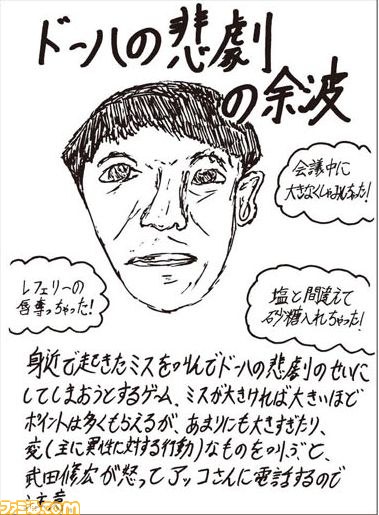 ドーハの悲劇
の余波
会議中に
大きなくしゃみしちゃった!
レフェリーの
唇奪っちゃった!
塩と間違えて
砂糖入れちゃった!
身近で起きたミスを叫んでドーハの悲劇のせいに
してしまおうとするゲーム。ミスが大きければ大きいほど
ポイントは多くもらえるが、あまりにも大きすぎたり、
変(主に異性に対する行動)なものを叫ぶと、
武田修宏が怒ってアッコさんに電話するので
注意
ファミ通.com